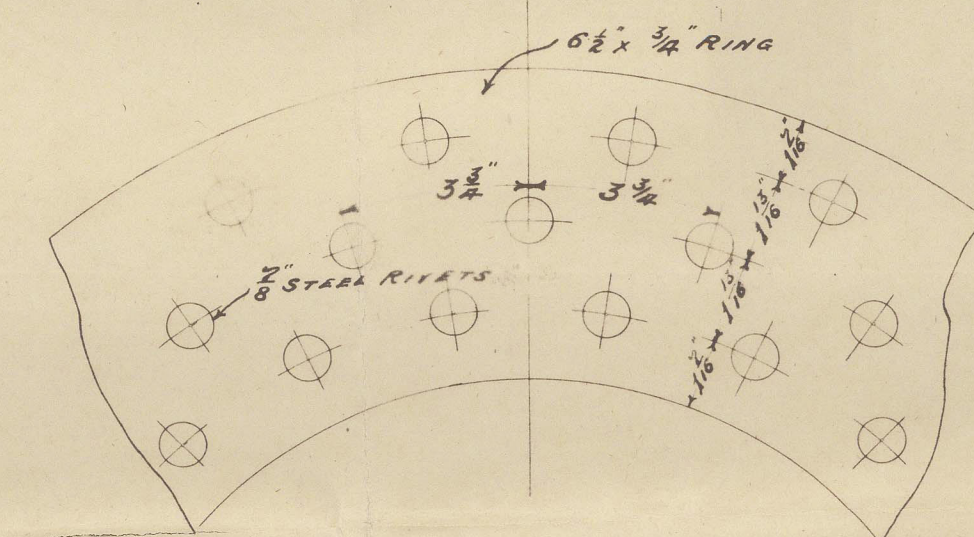 6 1/2" x 3/4" RING
3 3/4" 3 3/4"
7/8" STEEL RIVETS
1 7/16" 1 13/16" 1 13/16" 1 7/16"